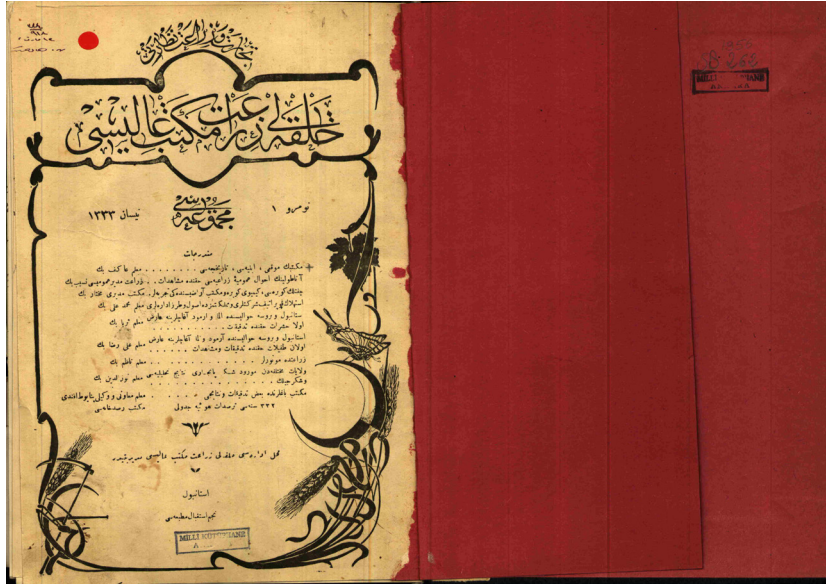 تجارت وزراعت نظارتی
خلقه‌لی زراعت مکتب عالیسی
مجموعه‌سی
نومرو ١
نیسان ١٣٣٣
مندرجات
مکتبك موقعی ، ابنیه‌سی ، تاریخچه‌سی . . . . . . . . معلم عاکف بك
آناطولینك احوال عمومیهٔ زراعیه‌سی حقنده مشاهدات . . زراعت مدیر عمومیسی نسیب بك
مکتب مدیری مختار بك
معلم محمد علی بك
استانبول و بروسه حوالیسنده الما و آرمود آغاجلرینه عارض
اولان حشرات حقنده تدقیقات . . . . معلم ثریا بك
استانبول و بروسه حوالیسنده آرمود و الما آغاجلرینه عارض
اولان طفیلات حقنده تدقیقات ومشاهدات . . . . معلم علی رضا بك
زراعتده موتورلر . . . . معلم ناظم بك
ولایات مختلفه‌دن مورود شکر پانجارلری نتایج تحلیلیه‌سی
وشکرجیلك . . . . معلم نورالدین بك
مکتب باغلرنده بعض تدقیقات ونتایجی . . . . معلم معاونی و وکیلی پنایوط افندی
٣٣٢ سنه‌سی ترصدات هوائیه جدولی مکتب رصدخانه‌سی
محل اداره‌سی خلقه‌لی زراعت مکتب عالیسی مدیریتیدر
استانبول
نجم استقبال مطبعه‌سی
MİLLİ KÜTÜPHANE
MİLLİ KÜTÜPHANE
ANKARA